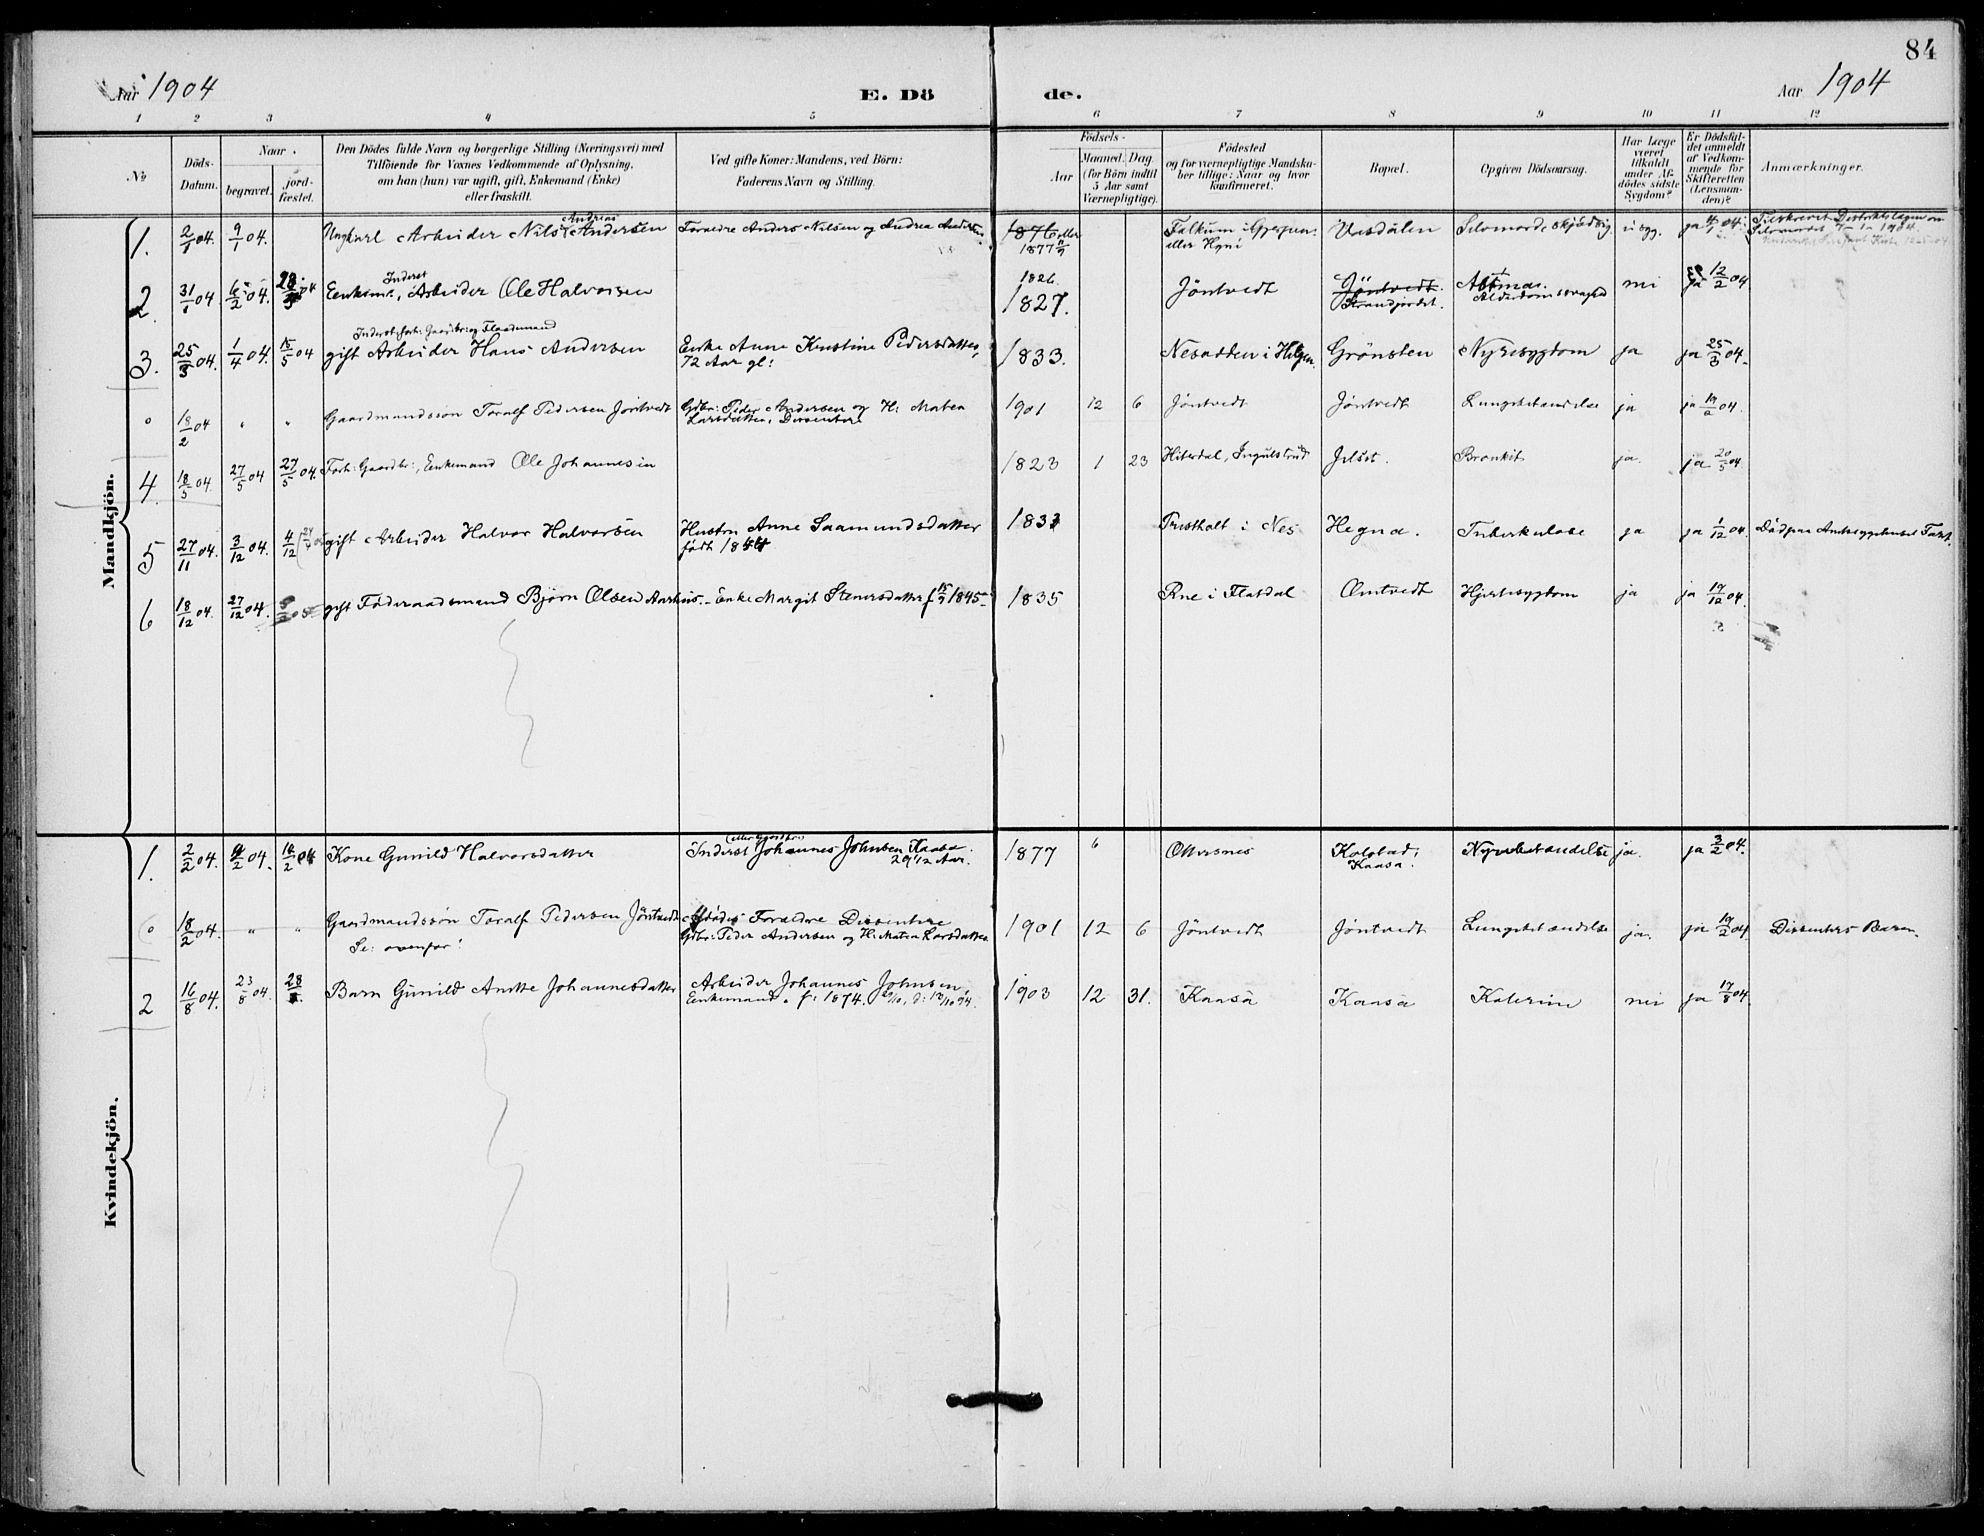 84
Aar 1904
E. Döde.
Aar 1904
1 2 3 4 5 6 7 8 9 10 11 12
No
Döds-Datum.
Naar
begravet.
jordfæstet.
Den Dödes fulde Navn og borgerlige Stilling (Næringsvei) med
Tilföiende for Voxnes Vedkommende af Oplysning,
om han (hun) var ugift, gift, Enkemand (Enke)
eller fraskilt.
Ved gifte Koner: Mandens, ved Börn:
Faderens Navn og Stilling.
Födsels-
Aar
Maaned. Dag.
(for Börn indtil
5 Aar samt
Værnepligtige).
Födested
og for værnepligtige Mandskaber tillige: Naar og hvor
konfirmeret.
Bopæl.
Opgiven Dödsaarsag.
Har Læge
været
tilkaldt
under Afdödes sidste
Sygdom?
Er Dödsfaldet anmeldt
af Vedkommende for
Skifteretten
(Lensmanden)?
Anmærkninger.
Mandkjön.
1. 2/1 04. 9/1 04. Ungkarl Arbeider Nils Andreas Andersen Foraeldre Anders Nilsen og Andrea 1876 eller 1877 Falkum i Gjerpen eller Selvmord ja 4/1 04.
2 31/1 04 6/2 04. Inderst Enkem:, Arbeider Ole Halvorsen 1826 1827. Jöntvedt Jöntvedt. Strandjordet. Alderdomssvaghed nei ja 12/2 04
3. 25/3 04. 1/4 04. 15/5 04 gift Arbeider Hans Andersen Enke Anne Kirstine Pedersdatter, 72 Aar gl: 1833. Nesodden i Grönsten Nyresygdom ja ja 25/3 04.
18/2 04 " " Gaardmandssön Toralf Pedersen Jöntvedt Gdbr: Peder Andersen og H: Maten Larsdatter, Dissentere 1901 12 6 Jöntvedt Jöntvedt Lungebetændelse ja ja 19/2 04.
4. 18/5 04. 27/5 04 27/5 04. Forh: Gaardbr:, Enkemand Ole Johannesen 1823 1 23 Hiterdal, Jelset. Bronkit ja. ja 20/5 04
5 27/11 04. 3/12 04. 4/12 gift Arbeider Halvor Halvorsen Hustru Anne Saamundsdatter född 1844 1831 i Nes Hegna. Tuberkulose ja ja 1/12 04. Död paa Amtssygehuset
6 18/12 04. 27/12 04. gift Föderaadsmand Björn Olsen Aarhus. - Enke Margit Stenersdatter f 15/9 1845. 1835 Rue i Flatdal Omtvedt Hjertesygdom ja ja 19/12 04.
Kvindekjön.
1. 2/2 04. 9/2 04. 14/2 04 Kone Gunild Halvorsdatter Inderst (eller Gaardbr:) Johannes Johnsen Kaasa. 29 1/2 Aar. 1877 " Ottersnes Kolstad, Kaasa. Nyrebetændelse ja. ja 3/2 04.
18/2 04. " " Gaardmandssön Toralf Pedersen Jöntvedt Se: ovenfor! Afdödes Foraeldre Dissentere Gdbr: Peder Andersen og H: Maten Larsdatter 1901 12 6 Jöntvedt Jöntvedt Lungebetændelse ja. ja 19/2 04 Dissenters Barn.
2 16/8 04. 23/8 04. 28/8 Barn Gunild Anette Johannesdatter Arbeider Johannes Johnsen, Enkemand, f: 1874. 1903 12 31. Kaasa Kaasa Kolerine nei ja 17/8 04.